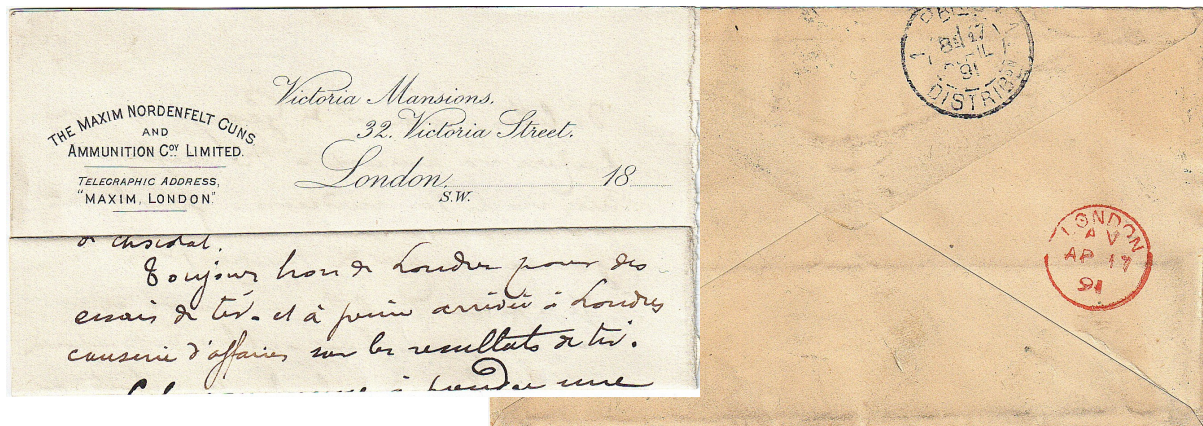 THE MAXIM NORDENFELT GUNS
AND
AMMUNITION COY LIMITED.
TELEGRAPHIC ADDRESS,
"MAXIM, LONDON."
Victoria Mansions,
32. Victoria Street.
London 18
S.W.
Toujours hors de Londres pour des
essais de tir. et à peine arrivé à Londres
causerie d'affaires sur les resultats de tir.
à une
17
91
DISTRIBON
LONDON
A V
AP 17
91